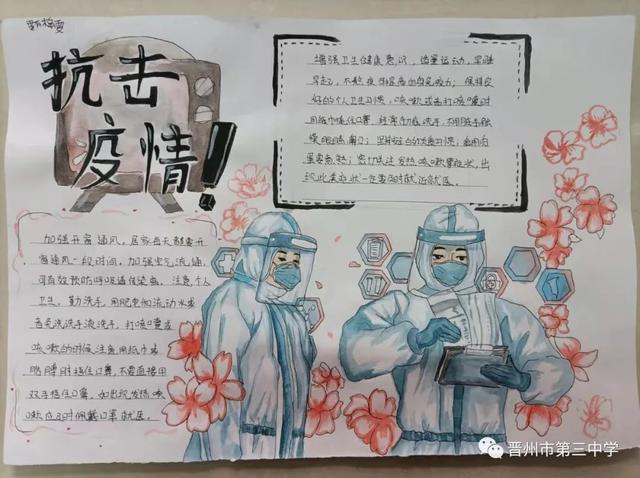 抗击
疫情!
增强卫生健康意识，适量运动，早睡
早起，不熬夜可提高自身免疫力；保持良
好的个人卫生习惯，咳嗽或打喷嚏时
用纸巾掩住口鼻，经常彻底洗手，不用脏手触
摸眼睛、鼻口；
此类症状一定要及时就近就医。
加强开窗通风，居家每天都要开
窗通风一段时间，加强空气流通，
可有效预防呼吸道传染病。注意个人
卫生。勤洗手，用肥皂和流动水或
者免洗洗手液洗手，打喷嚏或
咳嗽的时候注意用纸巾或
胳膊肘捂住口鼻，不要直接用
双手捂住口鼻，如出现发热咳
嗽应及时佩戴口罩就医。
晋州市第三中学